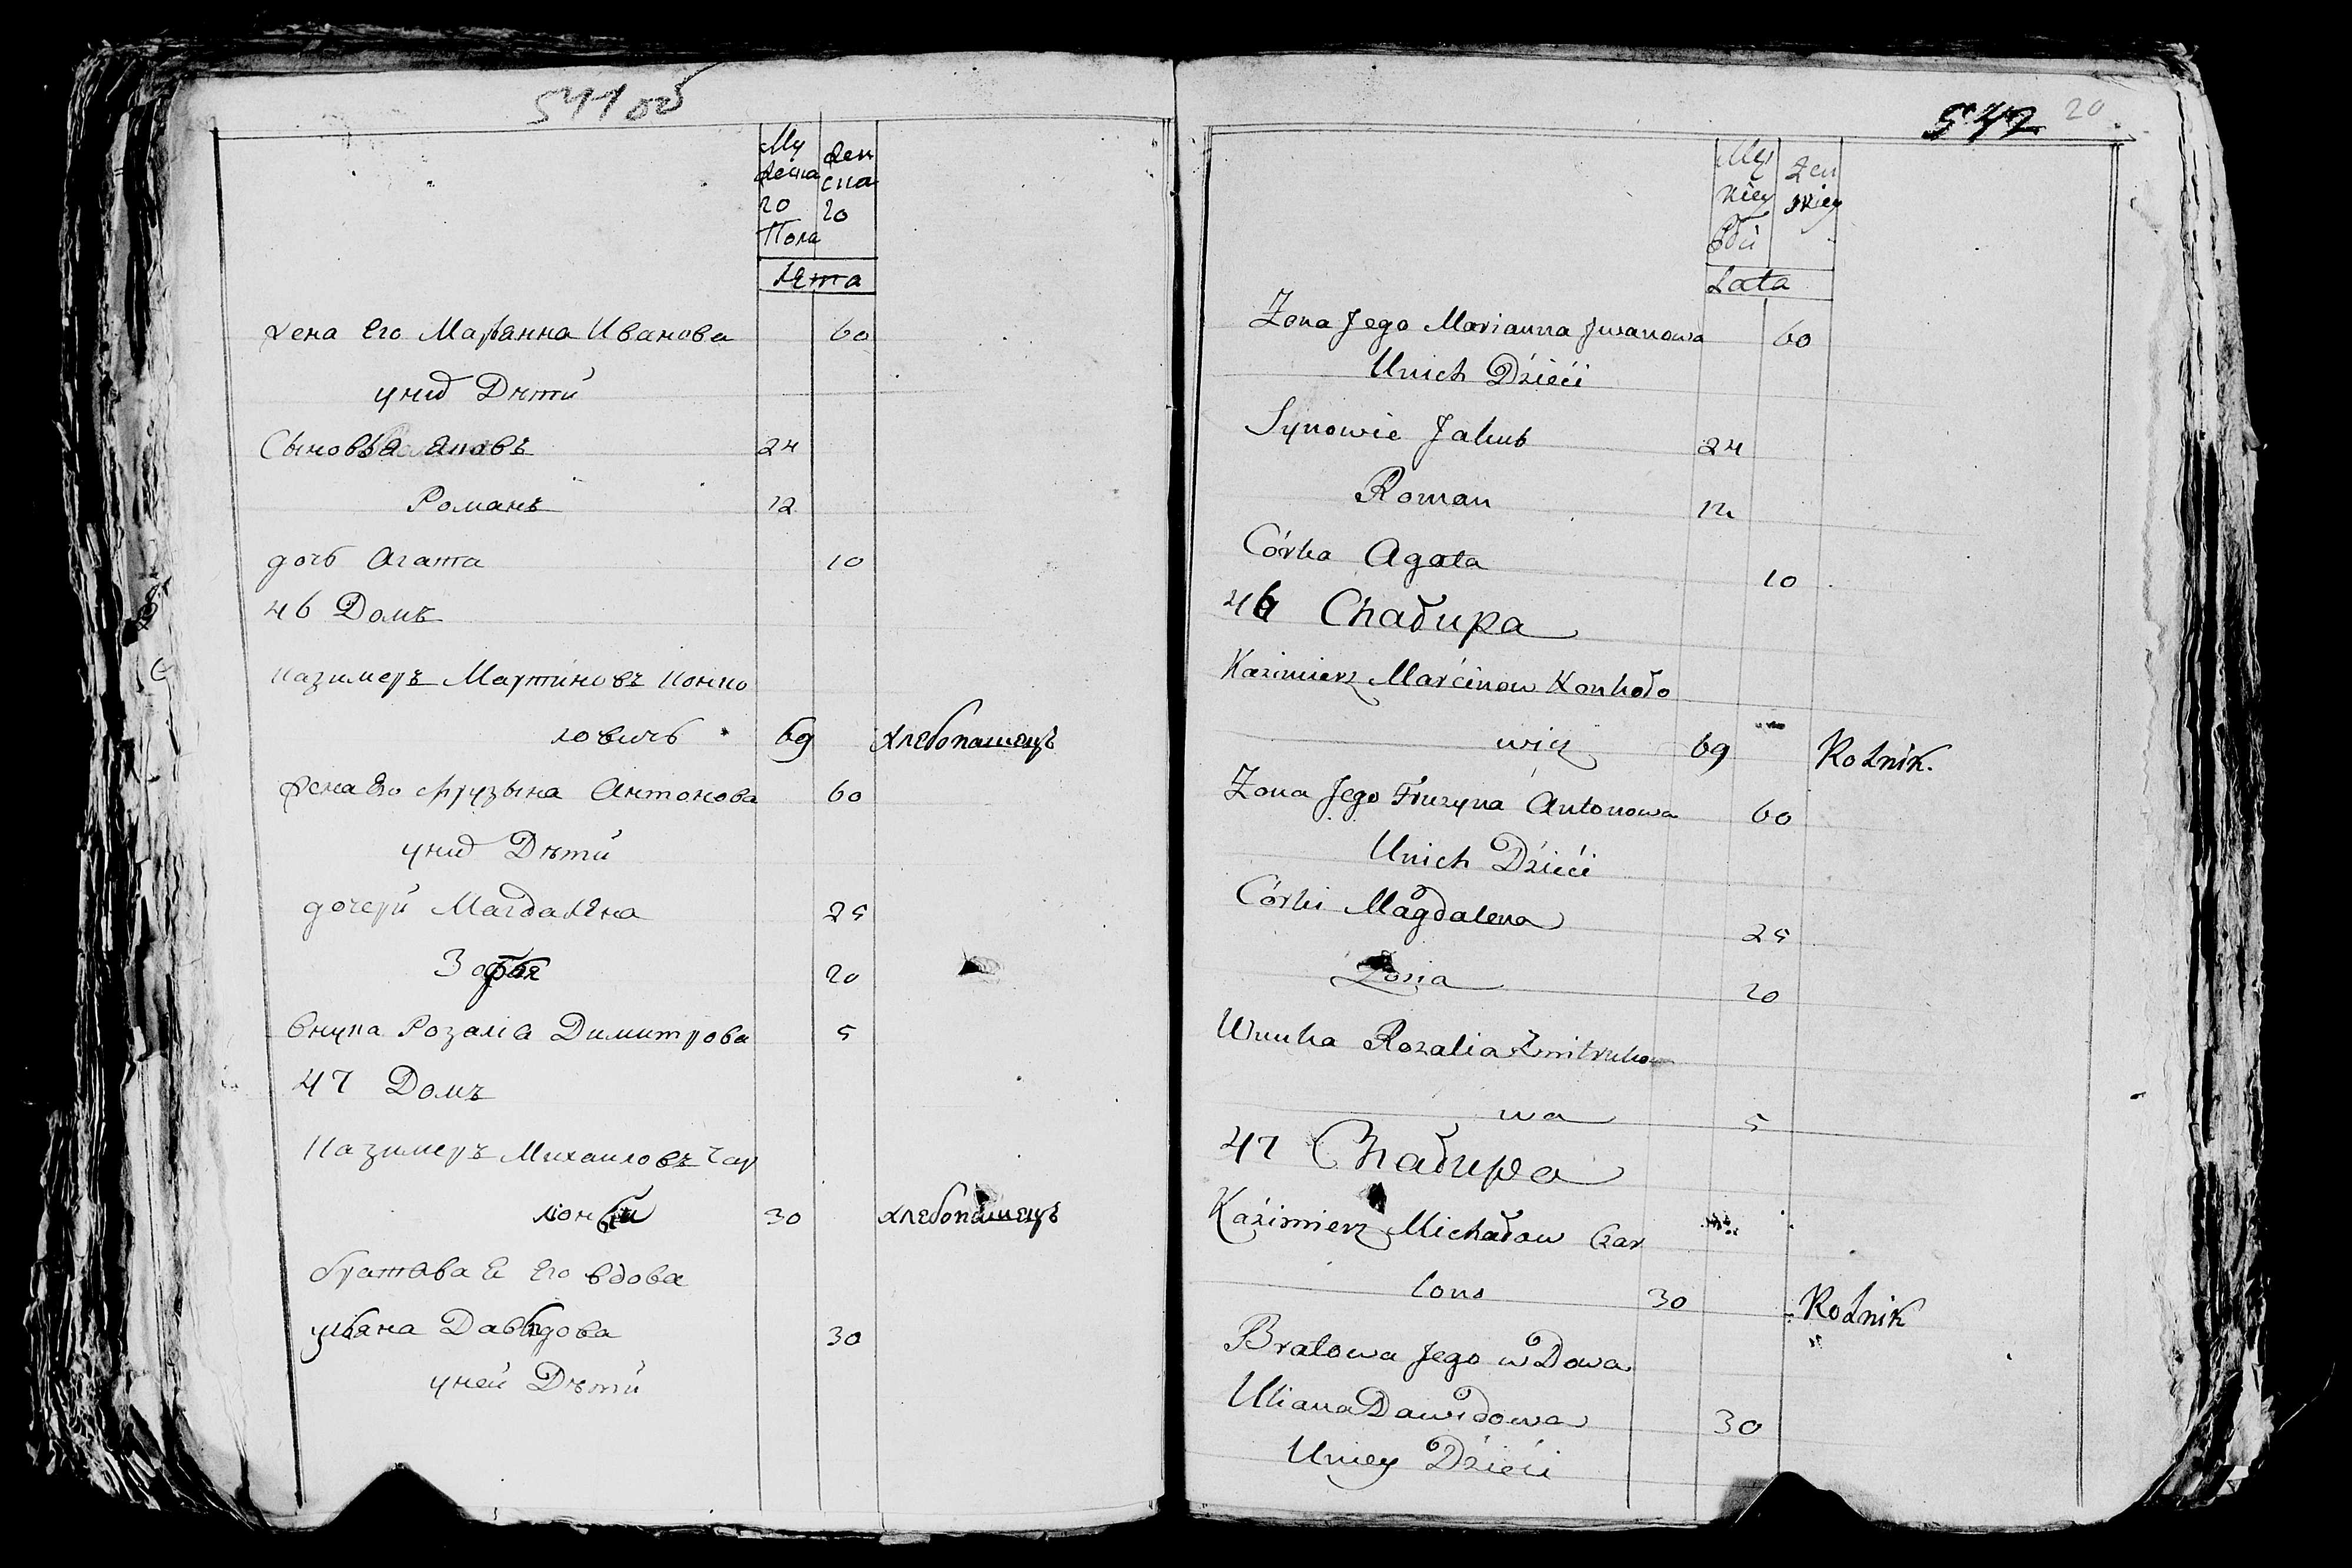 541 об
Му жен
жеска ска
го го
Пола
Лета
жена Его Марьянна Иванова 60
уних Дети
Сыновья Яковъ 24
Романъ 12
дочь Агата 10
46 Домъ
Казимеръ Мартиновъ Конко
ловичъ 69 хлебопашецъ
жена Его Фрузына Антонова 60
уних Дети
дочери Магдалена 25
Зофья 20
Внука Розалiа Димитрова 5
47 Домъ
Казимеръ Михаиловъ Чар
30 хлебопашецъ
Его вдова
ульяна Давыдова 30
уней Дети
542 20
Męz Zen
kiey skiey
Płci
Lata
Zona Jego Marianna Jwanowa 60
Unich Dzieći
Synowie Jakub 24
Roman 12
Córka Agata 10
46 Chałupa
Kazimierz Marćinow Konkoło
wicz 69 Rolnik.
Zona Jego Fruzyna Antonowa 60
Unich Dzieći
Córki Magdalena 25
Zosia 20
Wnuka Rozalia Zmitruko
wa 5
47 Chałupa
Kaźimierz Michałow Czar
lons 30 Rolnik
Bratowa Jego wDowa
Uliana Dawidowa 30
Uniey Dzieći